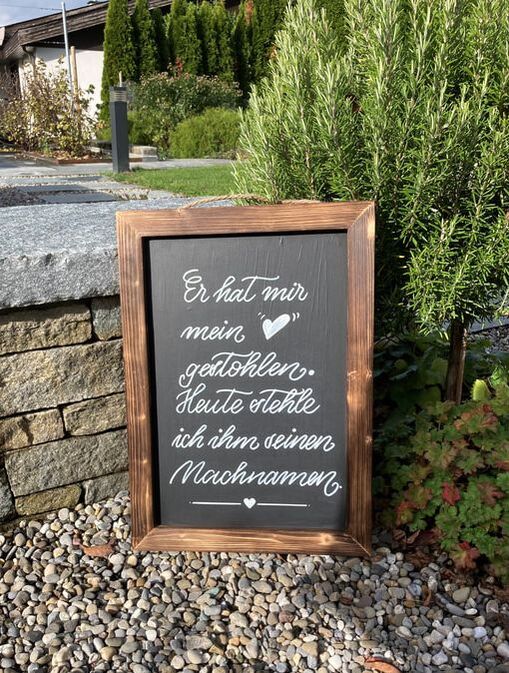 Er hat mir
mein
gestohlen.
Heute stehle
ich ihm seinen
Nachnamen.